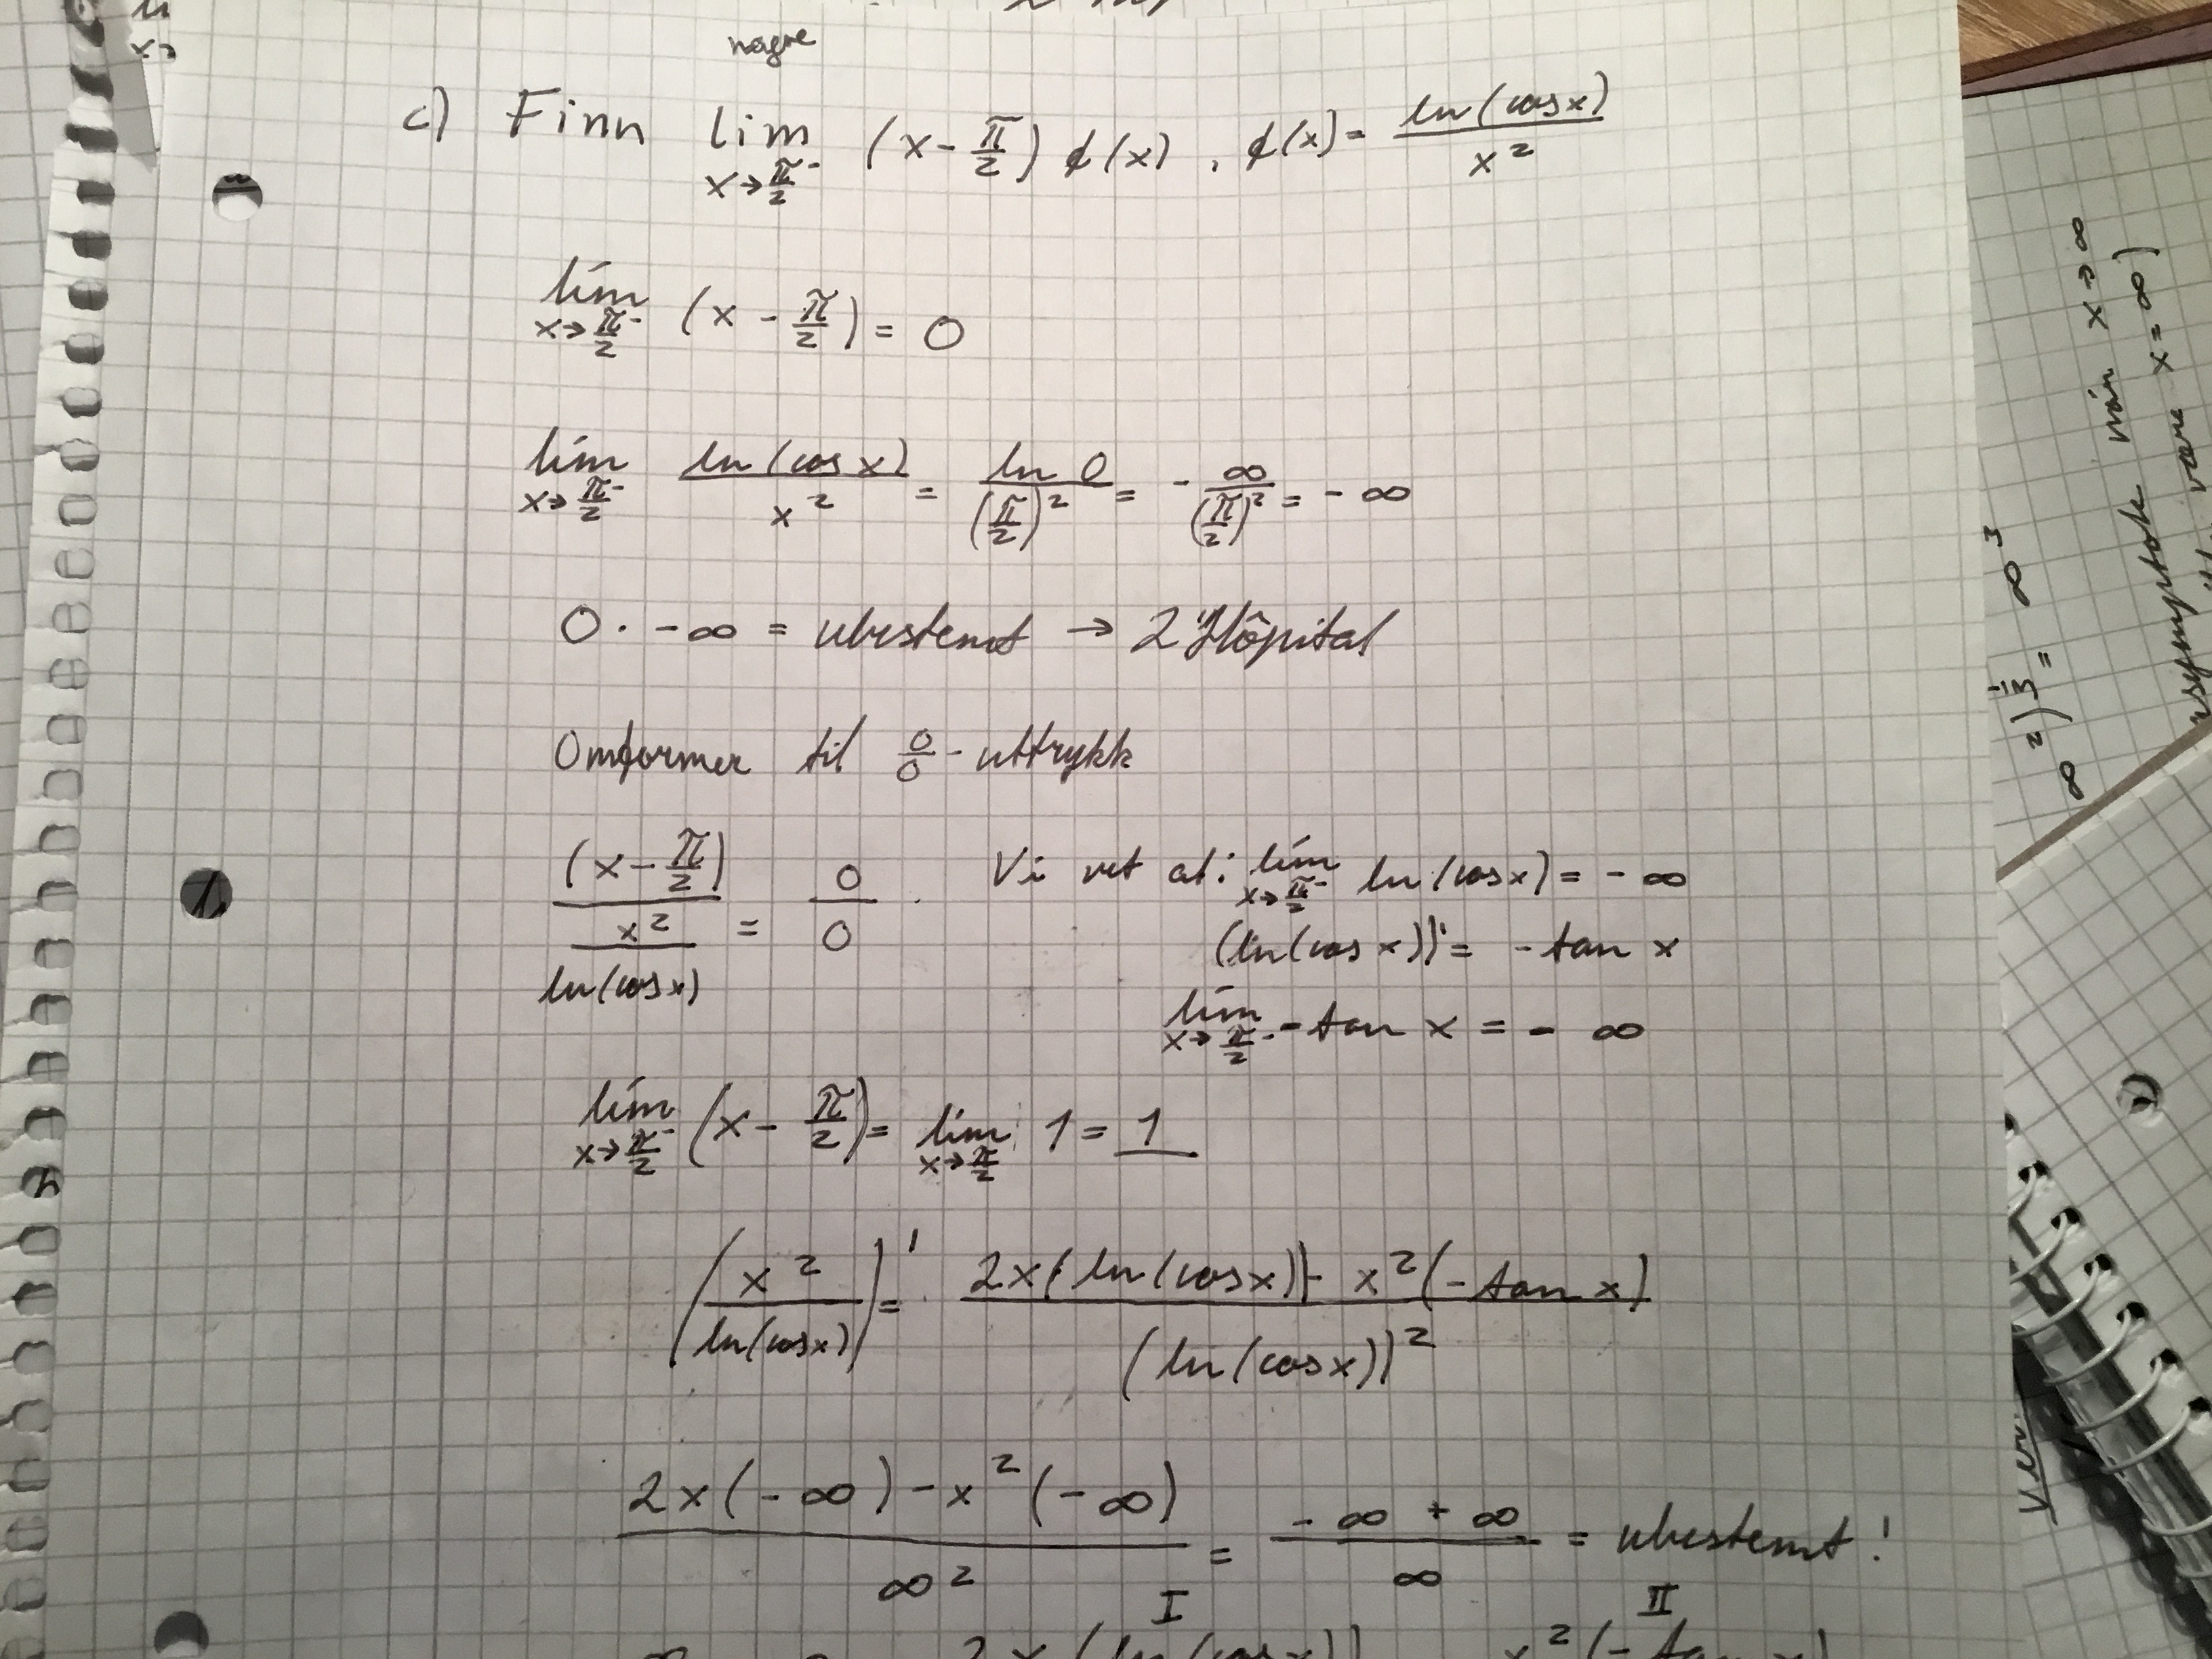 nagre
c) Finn lim x→π/2⁻ (x - π/2) f(x) , f(x) = ln(cos x) / x²
lim x→π/2⁻ (x - π/2) = 0
lim x→π/2⁻ ln(cos x) / x² = ln 0 / (π/2)² = - ∞ / (π/2)² = - ∞
0 · -∞ = ubestemt → L'Hôpital
Omformer til 0/0 - uttrykk
(x - π/2) / (x² / ln(cos x)) = 0/0 .
Vi vet at: lim x→π/2⁻ ln(cos x) = - ∞
(ln(cos x))' = - tan x
lim x→π/2⁻ - tan x = - ∞
lim x→π/2⁻ (x - π/2) = lim x→π/2 1 = 1
(x² / ln(cos x))' = 2x(ln(cos x)) - x²(- tan x) / (ln(cos x))²
2x(-∞) - x²(-∞) / ∞² = -∞ + ∞ / ∞ = ubestemt!
I II
2x (ln(cos x)) x²(- tan x)
∞²)^1/3 = ∞³
når x→∞
være x = ∞)